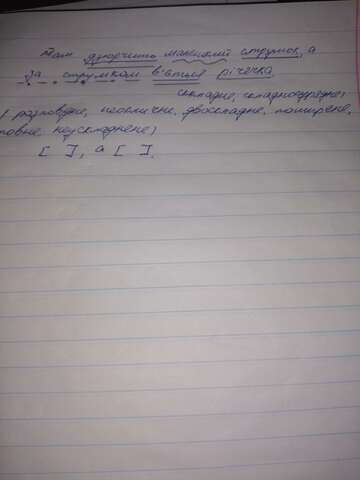 Там дзюрчить маленький струмок, а
за струмком в'ється річечка.
складне, складносурядне;
( розповідне, неоклична, двоскладне, поширене,
повне, неускладнене)
[ ], а [ ].